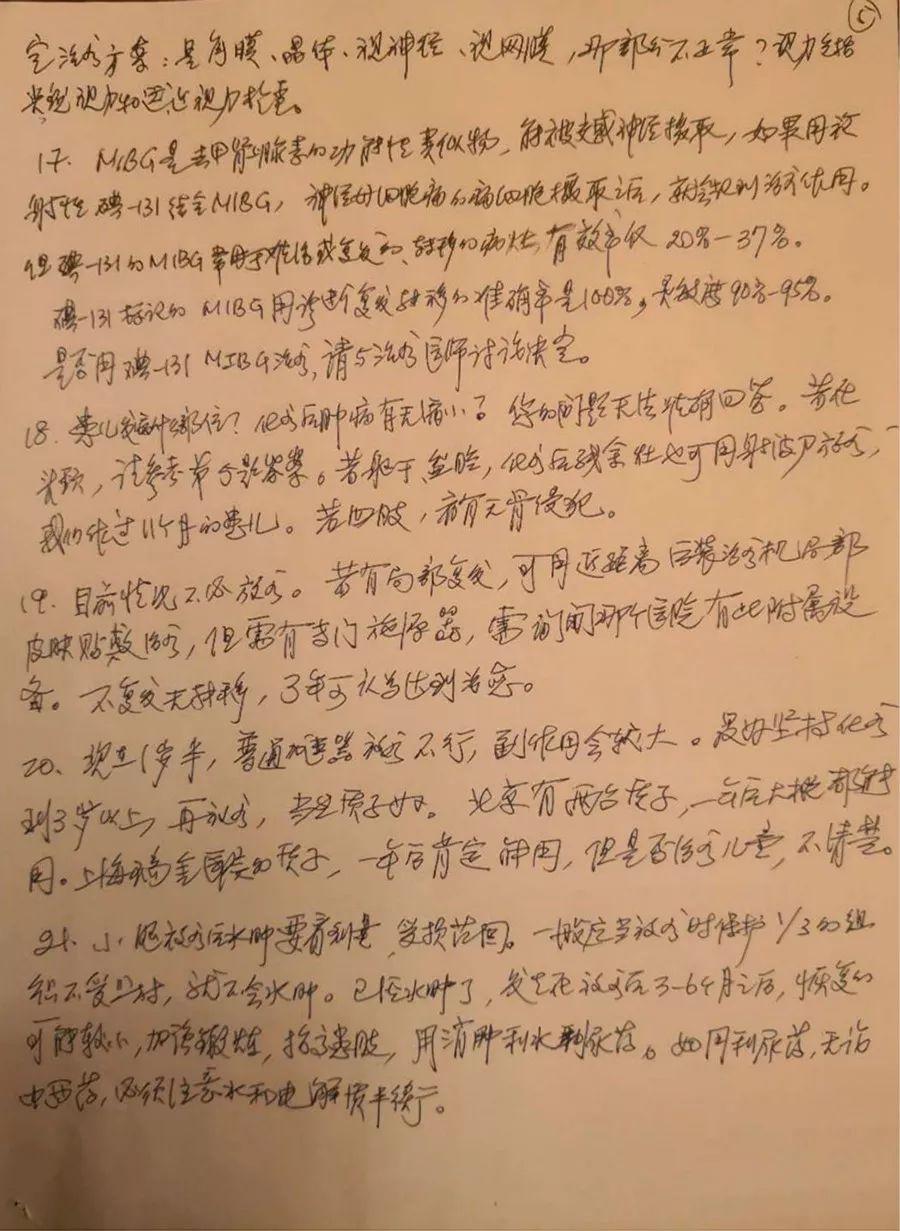 ⑤
定治疗方案：是角膜、晶体、视神经、视网膜，哪部分不正常？视力包括
光觉视力和远近视力检查。
17. MIBG是去甲肾上腺素的功能性类似物，能被交感神经摄取，如果用放
射性碘-131结合MIBG，神经母细胞瘤的瘤细胞摄取之后，就会起到治疗作用。
但碘-131的MIBG常用于难治或复发的、转移的病灶，有效率仅20%-37%。
碘-131标记的MIBG用诊断复发转移的准确率是100%，灵敏度90%-95%。
是否用碘-131 MIBG治疗，请与治疗医师讨论决定。
18. 患儿发病什么部位？化疗后肿瘤有无缩小？您的问题无法准确回答。若在
头颈，请参考第5题答案。若躯干、盆腔，化疗后残余灶也可用射波刀放疗，
我们做过11个月的患儿。若四肢，有无骨侵犯。
19. 目前情况不必放疗。若有局部复发，可用近距离后装治疗机局部
皮肤贴敷治疗，但需有专门施源器，需询问哪个医院有此附属设
备。不复发无转移，3年可认为达到治愈。
20、现在1岁半，普通加速器放疗不行，副作用会较大。最好坚持化疗
到3岁以上，再放疗，当然质子好。北京有两台质子，一年后大概都能
用。上海瑞金医院的质子，一年后肯定能用，但是否治疗儿童，不清楚。
21. 小腿放疗后水肿要看剂量，受损范围。一般应当放疗时保护1/3的组
织不受照射，就不会水肿。已经水肿了，发生在放疗后3-6个月之后，恢复的
可能较小，加强锻炼，抬高患肢，用消肿利水利尿药。如用利尿药，无论
中西药，必须注意水和电解质平衡。